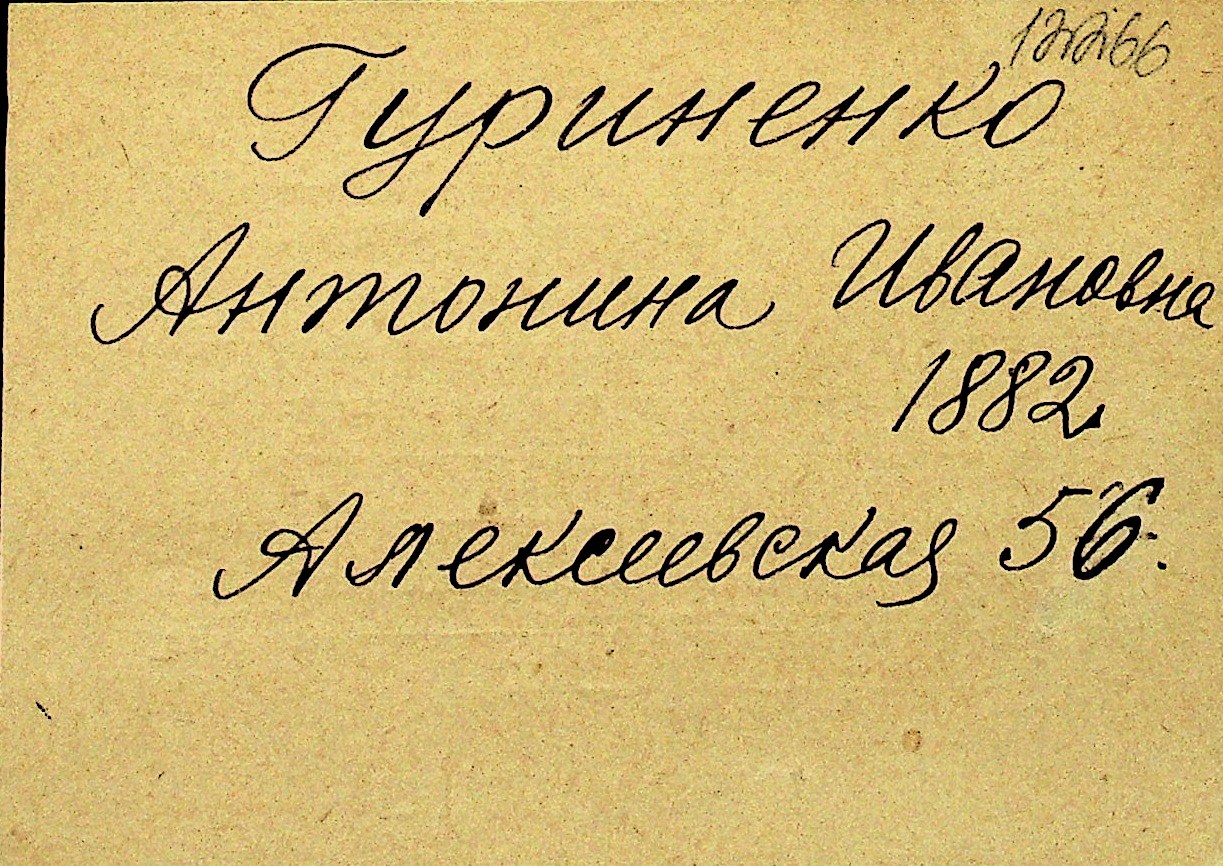 12266
Гуриненко
Антонина Ивановна
1882.
Алексеевская 56.